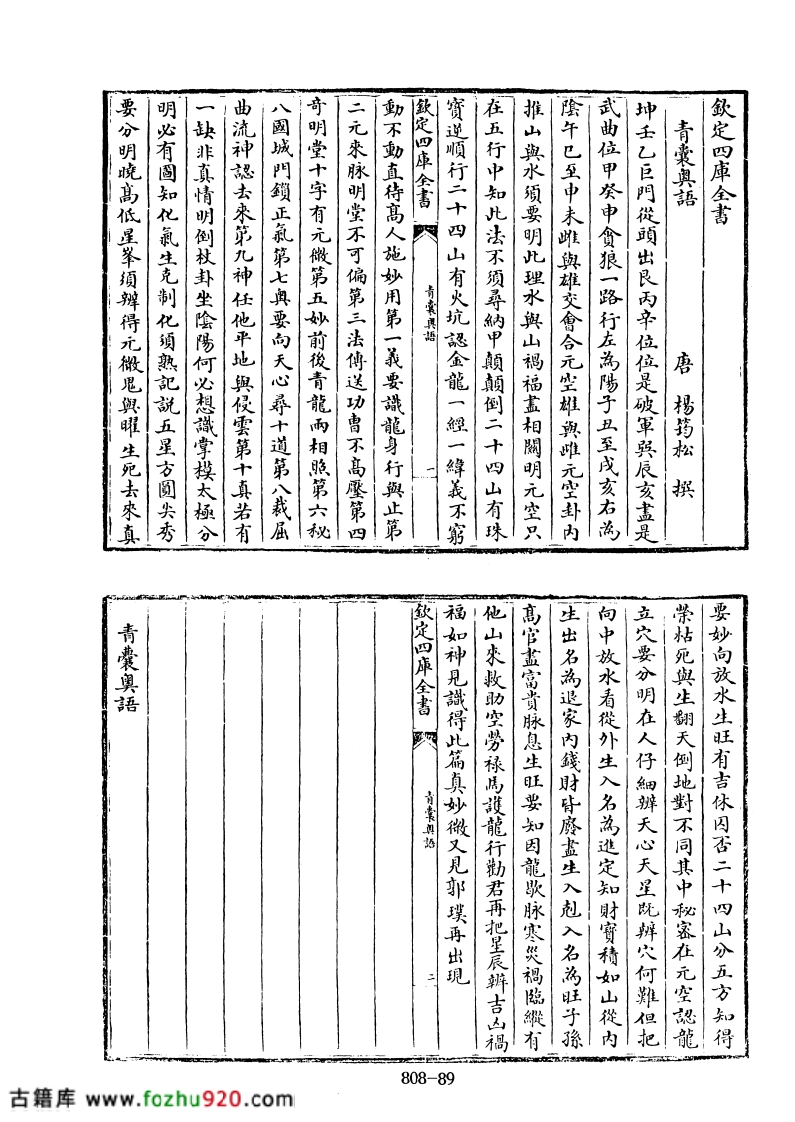 欽定四庫全書
青囊奧語
唐 楊筠松 撰
坤壬乙巨門從頭出艮丙辛位位是破軍巽辰亥盡是
武曲位甲癸申貪狼一路行左為陽子丑至戌亥右為
陰午巳至申未雌與雄交會合元空雄與雌元空卦內
推山與水須要明此理水與山禍福盡相關明元空只
在五行中知此法不須尋納甲顛顛倒二十四山有珠
寶逆順行二十四山有火坑認金龍一經一緯義不窮
欽定四庫全書
青囊奧語
一
動不動直待高人施妙用第一義要識龍身行與止第
二元來脉明堂不可偏第三法傳送功曹不高壓第四
奇明堂十字有元微第五妙前後青龍兩相照第六秘
八國城門鎖正氣第七奧要向天心尋十道第八裁屈
曲流神認去來第九神任他平地與侵雲第十真若有
一缺非真情明倒杖卦坐陰陽何必想識掌模太極分
明必有圖知化氣生克制化須熟記説五星方圓尖秀
要分明曉髙低星峯須辨得元微鬼與曜生死去來真
要妙向放水生旺有吉休囚否二十四山分五方知得
榮枯死與生翻天倒地對不同其中秘密在元空認龍
立穴要分明在人仔細辨天心天星旣辨穴何難但把
向中放水看從外生入名為進定知財寶積如山從內
生出名為退家內錢財皆廢盡生入剋入名為旺子孫
髙官盡富貴脉息生旺要知因龍歇脉寒災禍臨縱有
他山來救助空勞祿馬護龍行勸君再把星辰辨吉凶禍
福如神見識得此篇真妙微又見郭璞再出現
欽定四庫全書
青囊奧語
二
青囊奧語
808-89
古籍库 www.fozhu920.com